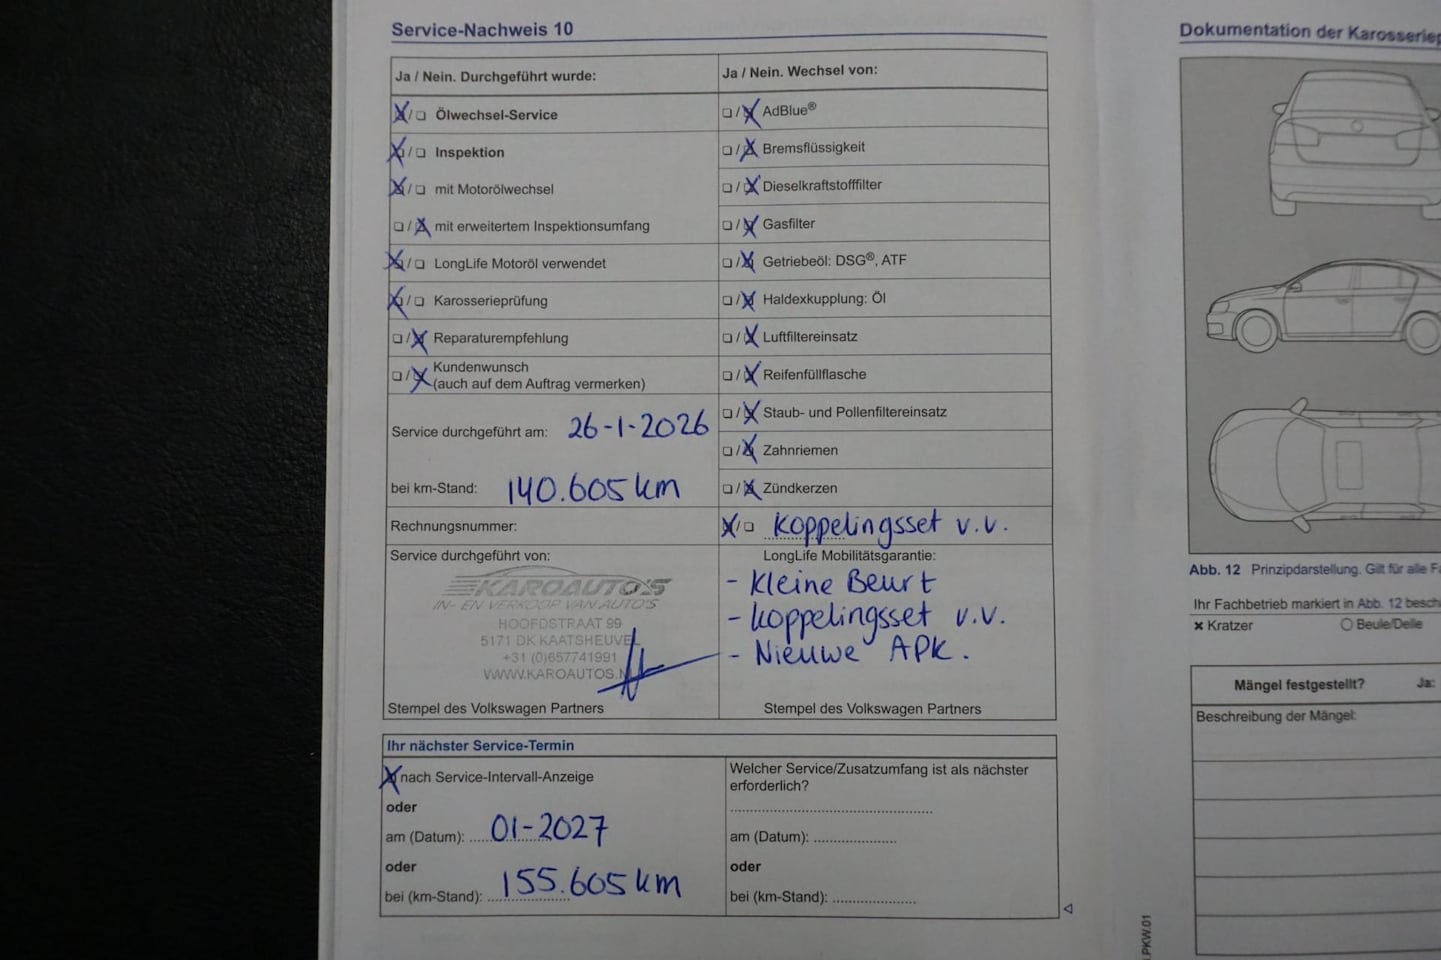 Service-Nachweis 10
Ja / Nein. Durchgeführt wurde:
Ölwechsel-Service
Inspektion
mit Motorölwechsel
mit erweitertem Inspektionsumfang
LongLife Motoröl verwendet
Karosserieprüfung
Reparaturempfehlung
Kundenwunsch
(auch auf dem Auftrag vermerken)
Service durchgeführt am: 26-1-2026
bei km-Stand: 140.605 km
Rechnungsnummer:
Service durchgeführt von:
KAROAUTO'S
IN- EN VERKOOP VAN AUTO'S
HOOFDSTRAAT 99
5171 DK KAATSHEUVEL
+31 (0)657741991
WWW.KAROAUTOS.N
Stempel des Volkswagen Partners
Ja / Nein. Wechsel von:
AdBlue®
Bremsflüssigkeit
Dieselkraftstofffilter
Gasfilter
Getriebeöl: DSG®, ATF
Haldexkupplung: Öl
Luftfiltereinsatz
Reifenfüllflasche
Staub- und Pollenfiltereinsatz
Zahnriemen
Zündkerzen
Koppelingsset v.v.
LongLife Mobilitätsgarantie:
- Kleine Beurt
- Koppelingsset v.v.
- Nieuwe APK.
Stempel des Volkswagen Partners
Ihr nächster Service-Termin
nach Service-Intervall-Anzeige
oder
am (Datum): 01-2027
oder
bei (km-Stand): 155.605 km
Welcher Service/Zusatzumfang ist als nächster
erforderlich?
am (Datum):
oder
bei (km-Stand):
Dokumentation der Karosseriep
Abb. 12 Prinzipdarstellung. Gilt für alle F
Ihr Fachbetrieb markiert in Abb. 12 besch
Kratzer Beule/Delle
Mängel festgestellt? Ja:
Beschreibung der Mängel:
.PKW.01